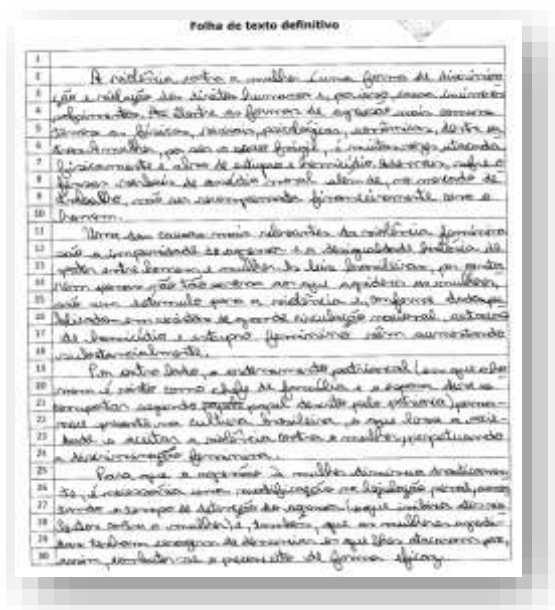 Folha de texto definitivo
1
2 A violência contra a mulher é uma forma de discrimina-
3 ção e violação dos direitos humanos e, por isso, causa inúmeros
4 sofrimentos. Dentre as formas de agressão mais comuns
5 temos as físicas, sexuais, psicológicas, econômicas, dentre ou-
6 tras. A mulher, por ser o sexo frágil, é muitas vezes atacada
7 fisicamente e alvo de estupro e homicídio. Ademais, sofre o
8 verbais de assédio moral além de, no mercado de
9 trabalho, não ser recompensada financeiramente como o
10 homem.
11 Uma das causas mais relevantes da violência feminina
12 são a impunidade do agressor e a desigualdade histórica de
13 poder entre homem e mulher. As leis brasileiras, por
14 punição tão severa ao que agridem as mulheres,
15 são um estímulo para a violência e, conforme dados pu-
16 blicados em revistas de grande circulação nacional, os casos
17 de homicídio e estupro feminino vêm aumentando
18 substancialmente.
19 Por outro lado, o ordenamento patriarcal (em que o ho-
20 mem é visto como chefe de família e a esposa deve se
21 comportar segundo papel descrito pelo patriarca), perma-
22 nece presente na cultura brasileira, o que leva a socie-
23 dade a aceitar a violência contra a mulher, perpetuando
24 a discriminação feminina.
25 Para que a agressão à mulher diminua drasticamen-
26 te, é necessária uma modificação na legislação penal, aumen-
27 tando o tempo de detenção do agressor (o que inibiria
28 contra a mulher) e, também, que as mulheres agredi-
29 das tenham coragem de denunciar os que lhes atacaram para,
30 assim, combater-se o preconceito de forma eficaz.